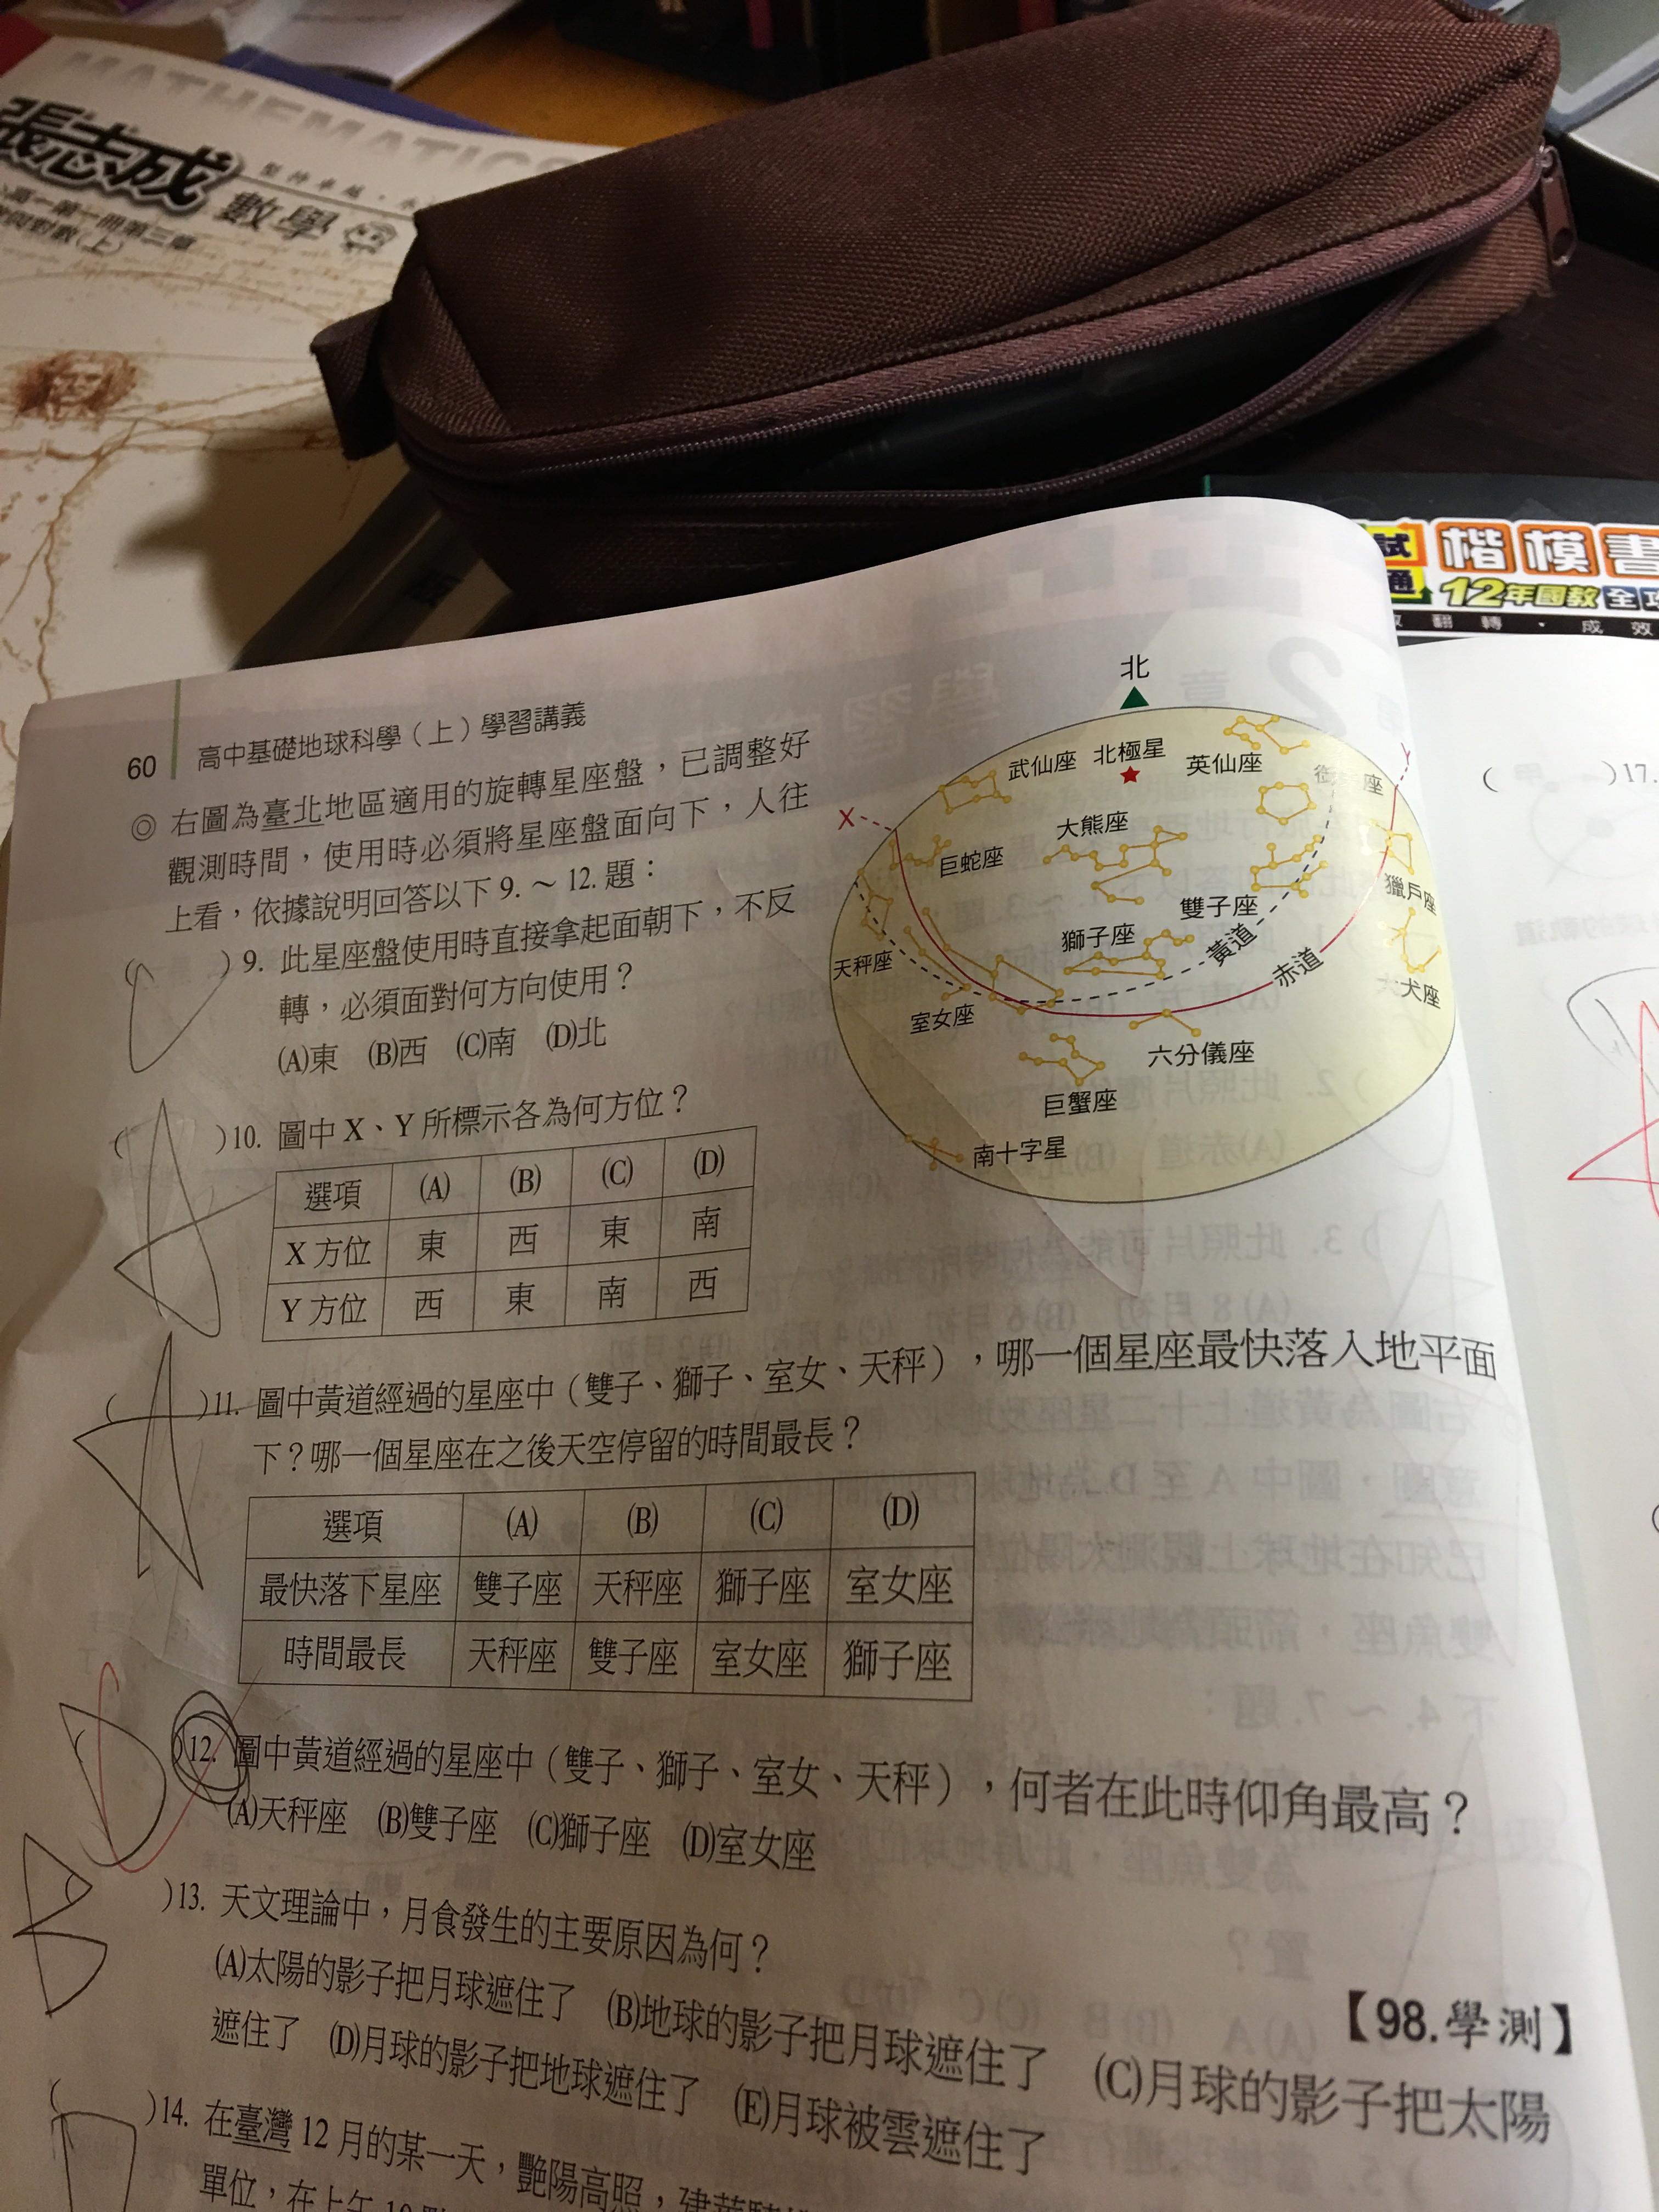 MATHEMATICS
張志成
數學
試
通
楷模書
12年國教 全
翻 轉 · 成 效
60 高中基礎地球科學（上）學習講義
◎ 右圖為臺北地區適用的旋轉星座盤，已調整好
觀測時間，使用時必須將星座盤面向下，人往
上看，依據說明回答以下 9. ～ 12. 題：
( )9. 此星座盤使用時直接拿起面朝下，不反
轉，必須面對何方向使用？
(A)東 (B)西 (C)南 (D)北
C
( )10. 圖中 X、Y 所標示各為何方位？
A
選項 (A) (B) (C) (D)
X 方位 東 西 東 南
Y 方位 西 東 南 西
北
武仙座 北極星 英仙座
座
X
Y
大熊座
巨蛇座
獵戶座
雙子座
獅子座
黃道
天秤座
赤道
犬座
室女座
六分儀座
巨蟹座
南十字星
( )11. 圖中黃道經過的星座中（雙子、獅子、室女、天秤），哪一個星座最快落入地平面
下？哪一個星座在之後天空停留的時間最長？
A
選項 (A) (B) (C) (D)
最快落下星座 雙子座 天秤座 獅子座 室女座
時間最長 天秤座 雙子座 室女座 獅子座
)12. 圖中黃道經過的星座中（雙子、獅子、室女、天秤），何者在此時仰角最高？
(A)天秤座 (B)雙子座 (C)獅子座 (D)室女座
D
)13. 天文理論中，月食發生的主要原因為何？
B
(A)太陽的影子把月球遮住了 (B)地球的影子把月球遮住了 (C)月球的影子把太陽
遮住了 (D)月球的影子把地球遮住了 (E)月球被雲遮住了
【98.學測】
( )14. 在臺灣 12 月的某一天，艷陽高照，
D
單位，在上午 10
( )17.